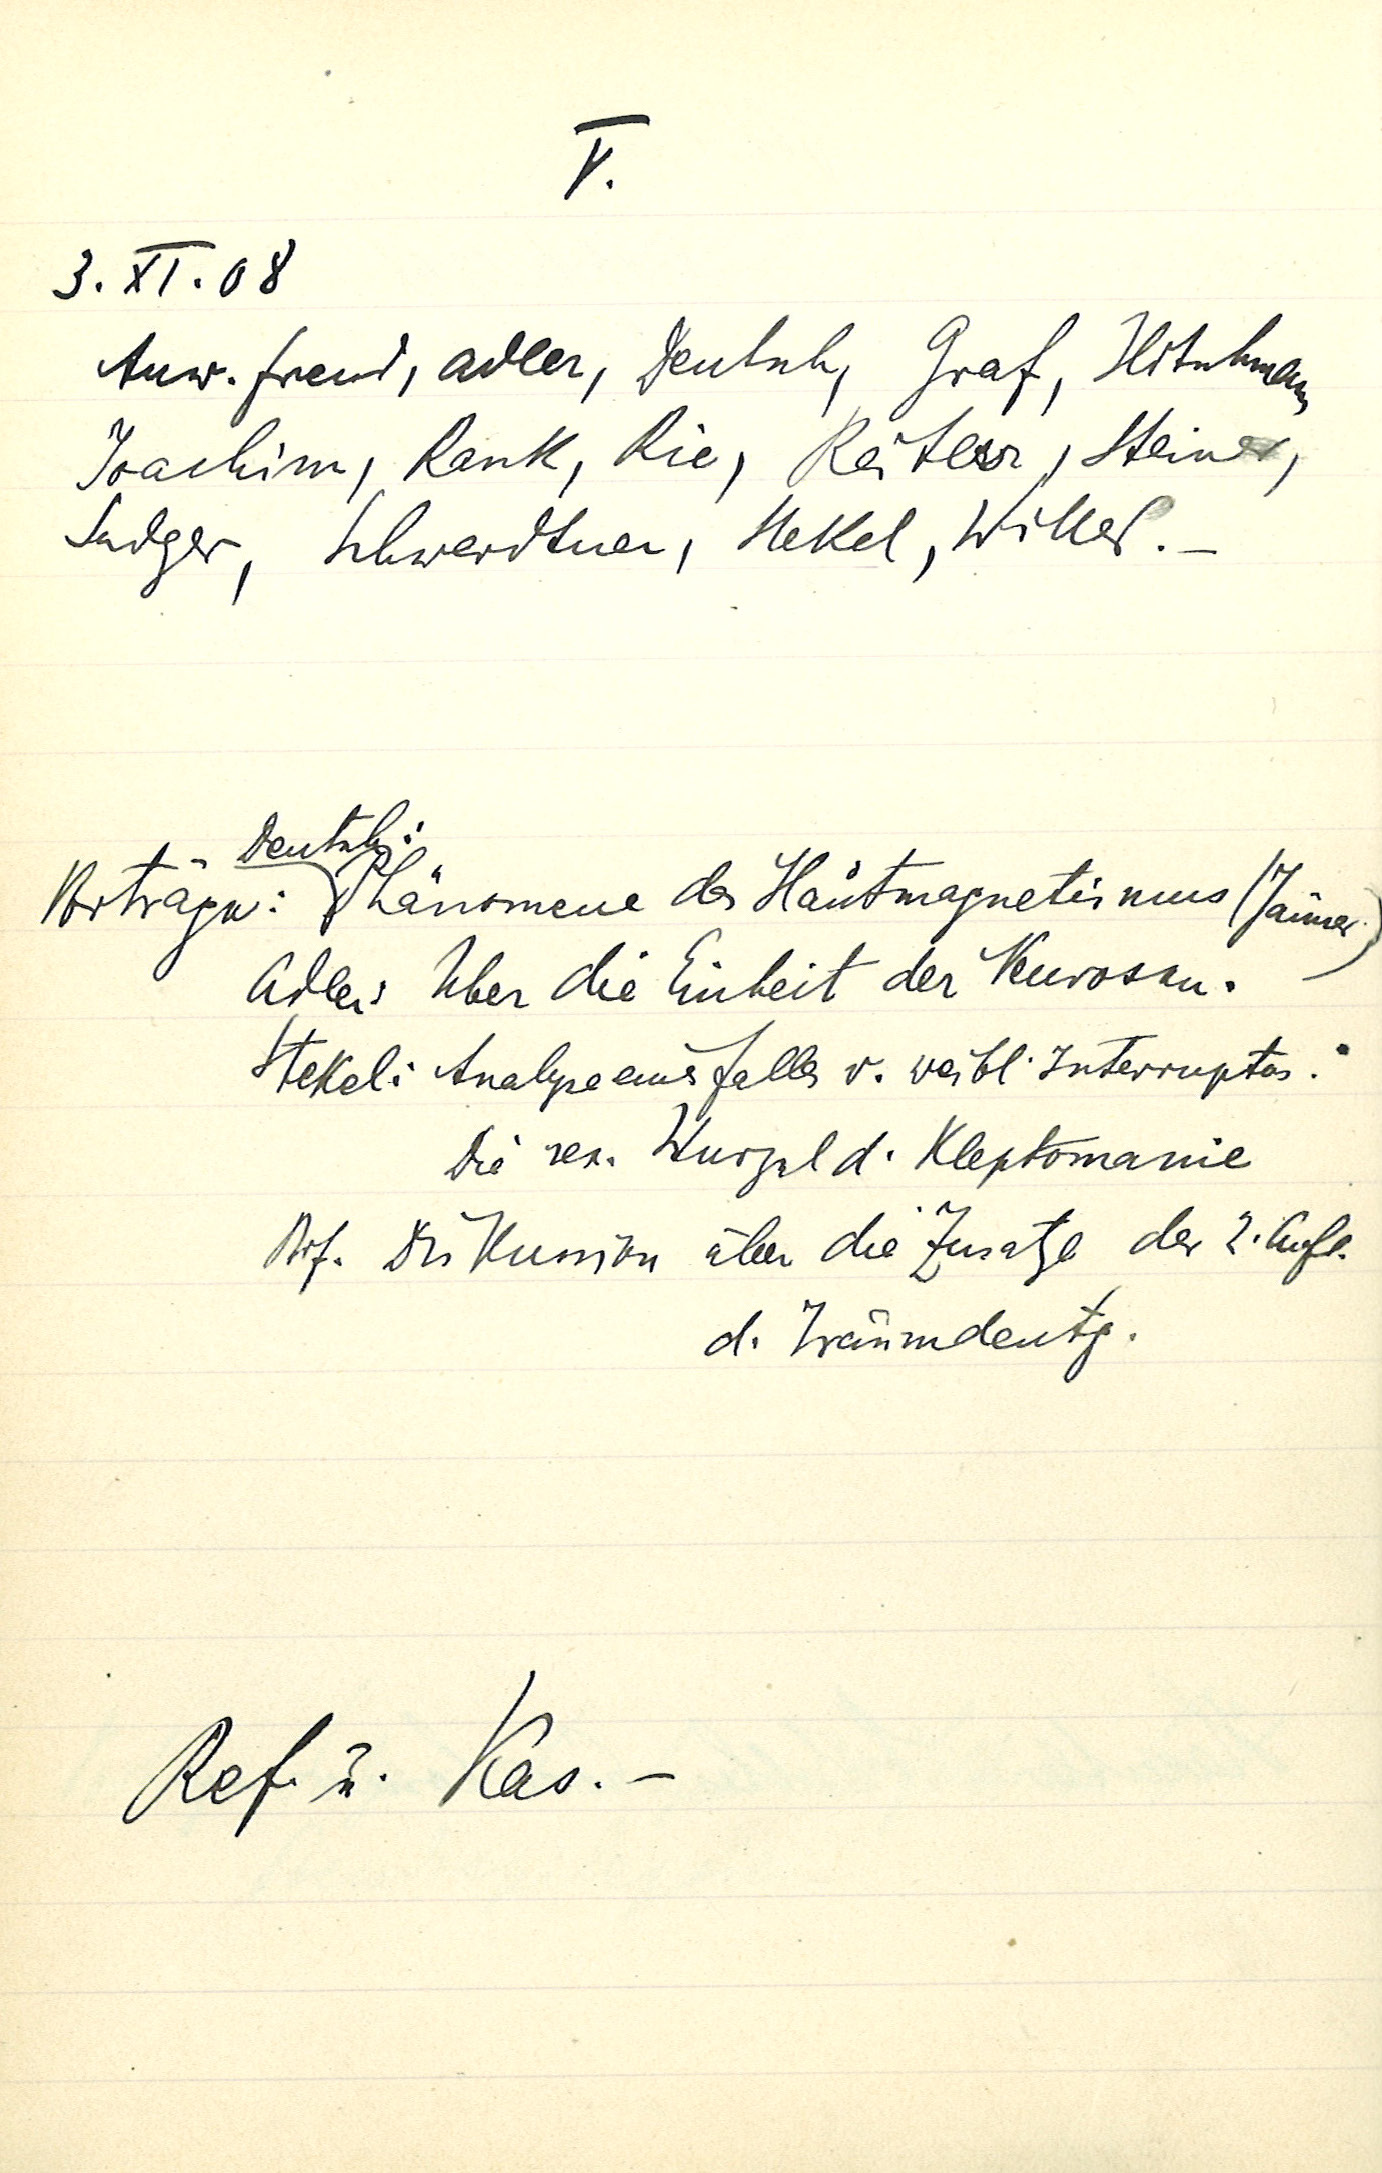 V.
3. XI. 08
Anw. Freud, Adler, Deutsch, Graf, Hitschmann
Joachim, Rank, Rie, Reitler, Steiner,
Sadger, Schwerdtner, Stekel, Wittels. –
Deutsch:
Vorträge: Phänomene des Hautmagnetismus (Jänner)
Adler: Über die Einheit der Neurosen.
Stekel: Analyse eines Falles v. weibl. Interruptus.
Die sex. Wurzel d. Kleptomanie
Prf. Diskussion über die Zusätze der 2. Aufl.
d. Traumdeutg.
Ref. u. Kas. –